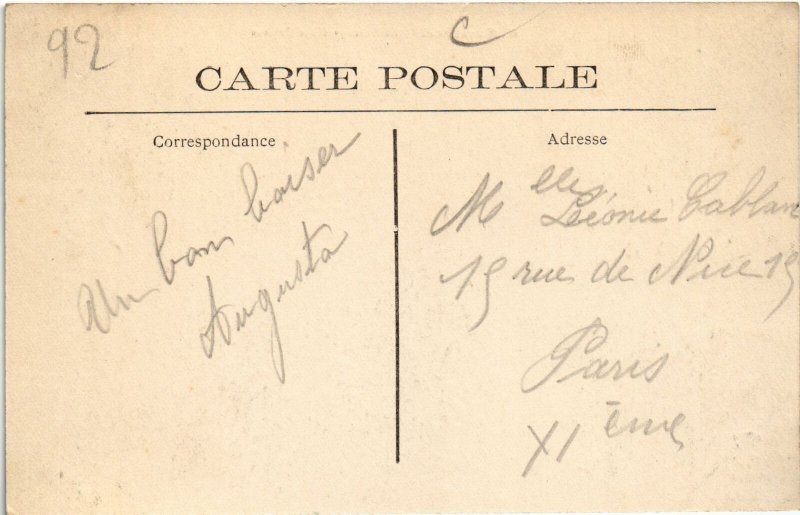 92
C
CARTE POSTALE
Correspondance
Adresse
Un bon baiser
Augusta
Melle Léonie Cablan
19 rue de Nice 19
Paris
XIème